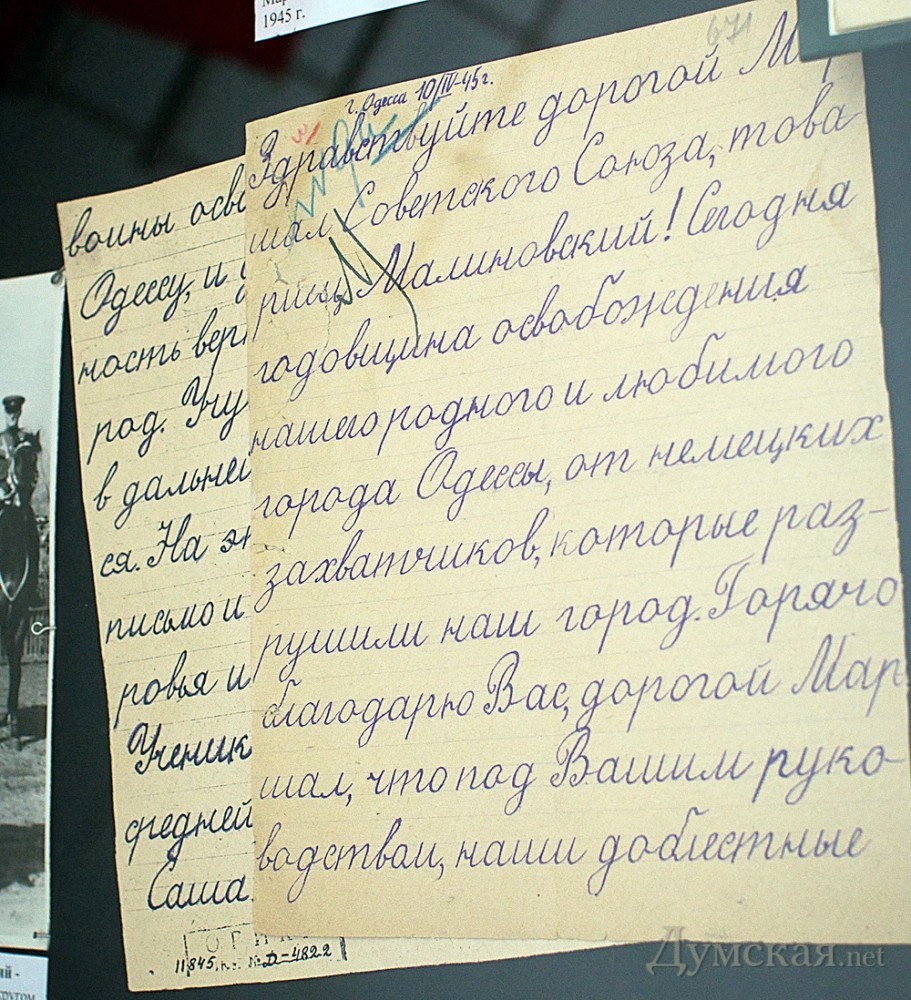 1945 г.
671
г. Одесса 10/IV-45 г.
Здравствуйте дорогой Мар
шал Советского Союза, това
рищ Малиновский! Сегодня
годовщина освобождения
нашего родного и любимого
города Одессы, от немецких
захватчиков, которые раз-
рушили наш город. Горячо
благодарю Вас, дорогой Мар
шал, что под Вашим руко-
водством, наши доблестные
воины осво
Одессу, и
ность вер
род. Учу
в дальней
ся. На э
письмо и
ровья и
Ученик
средней
Саша
11845 № Д-4822
ий -
кругом
Думская.net